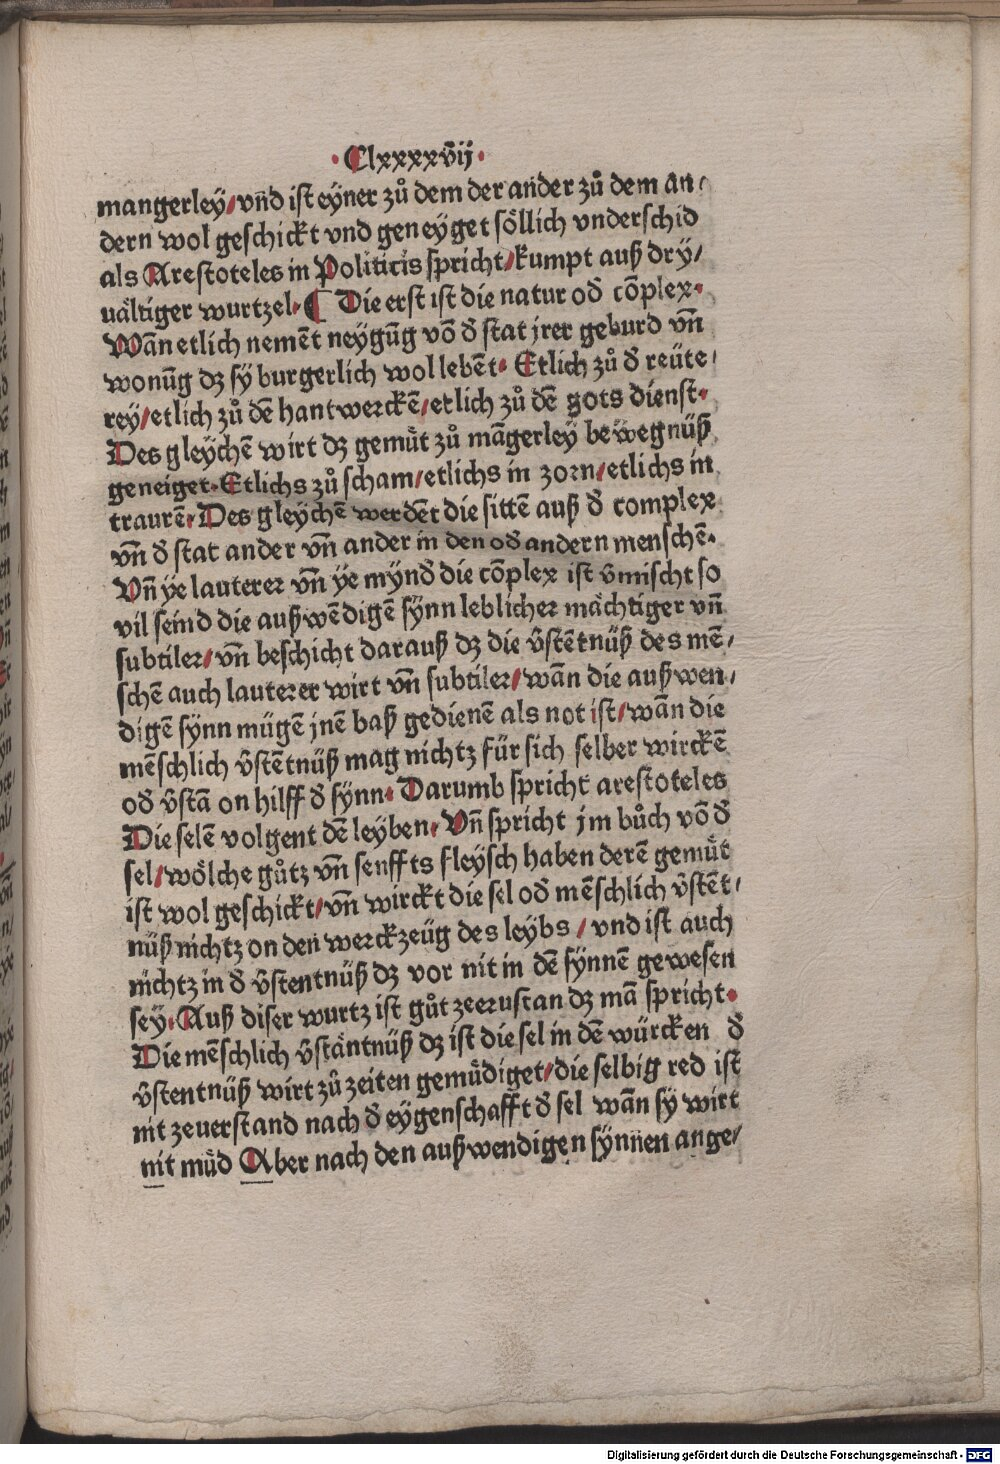 ·Clxxxxvij·
mangerley/vnd ist eyner zů dem der ander zů dem an/
dern wol geschickt vnd geneyget söllich vnderschid
als Arestoteles in Politicis spricht/kumpt auß dry/
uältiger wurtzel·¶ Die erst ist die natur od̄ cōplex·
Wān etlich nemēt neygūg vō d̄ stat jrer geburd vn̄
wonūg dz sy burgerlich wol lebēt· Etlich zů d̄ reüte/
rey/etlich zů dē hantwerckē/etlich zů dē gots dienst·
Des gleychē wirt dz gemůt zů māgerley bewegnüß
geneiget·Etlichs zů scham/etlichs in zorn/etlichs in
traurē·Des gleychē werdēt die sittē auß d̄ complex
vn̄ d̄ stat ander vn̄ ander in den od̄ andern menschē·
Vn̄ ye lauterer vn̄ ye mynd̄ die cōplex ist v̄mischt so
vil seind die außwēdigē synn leblicher mächtiger vn̄
subtiler/vn̄ beschicht darauß dz die v̄stētnüß des mē/
schē auch lauterer wirt vn̄ subtiler/wān die außwen/
digē synn mügē jnē baß gedienē als not ist/wān die
mēschlich v̄stētnüß mag nichtz für sich selber wirckē
od̄ v̄stā on hilff d̄ synn· Darumb spricht arestoteles
Die selē volgent dē leyben·Vn̄ spricht jm bůch vō d̄
sel/wölche gůtz vn̄ senffts fleysch haben derē gemůt
ist wol geschickt/vn̄ wirckt die sel od̄ mēschlich v̄stēt/
nüß nichtz on den werckzeüg des leybs/vnd ist auch
nichtz in d̄ v̄stentnüß dz vor nit in dē synnē gewesen
sey·Auß diser wurtz ist gůt zeerustan dz mā spricht·
Die mēschlich v̄stäntnüß dz ist die sel in dē würcken d̄
v̄stentnüß wirt zů zeiten gemůdiget/die selbig red ist
nit zeuerstand nach d̄ eygenschafft d̄ sel wān sy wirt
nit můd Aber nach den außwendigen synnen ange/
Digitalisierung gefördert durch die Deutsche Forschungsgemeinschaft - DFG